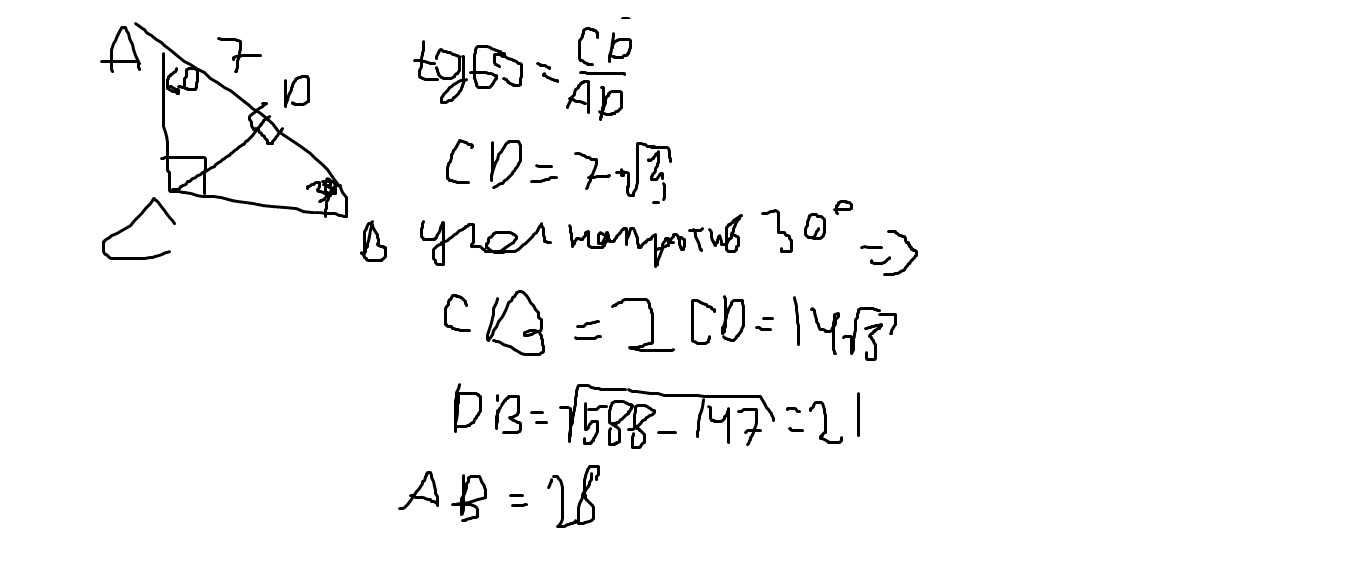 A 7 D
60
30
C B
tg60 = CD/AD
CD = 7√3
угол напротив 30° =>
CB = 2 CD = 14√3
DB = √588-147 = 21
AB = 28